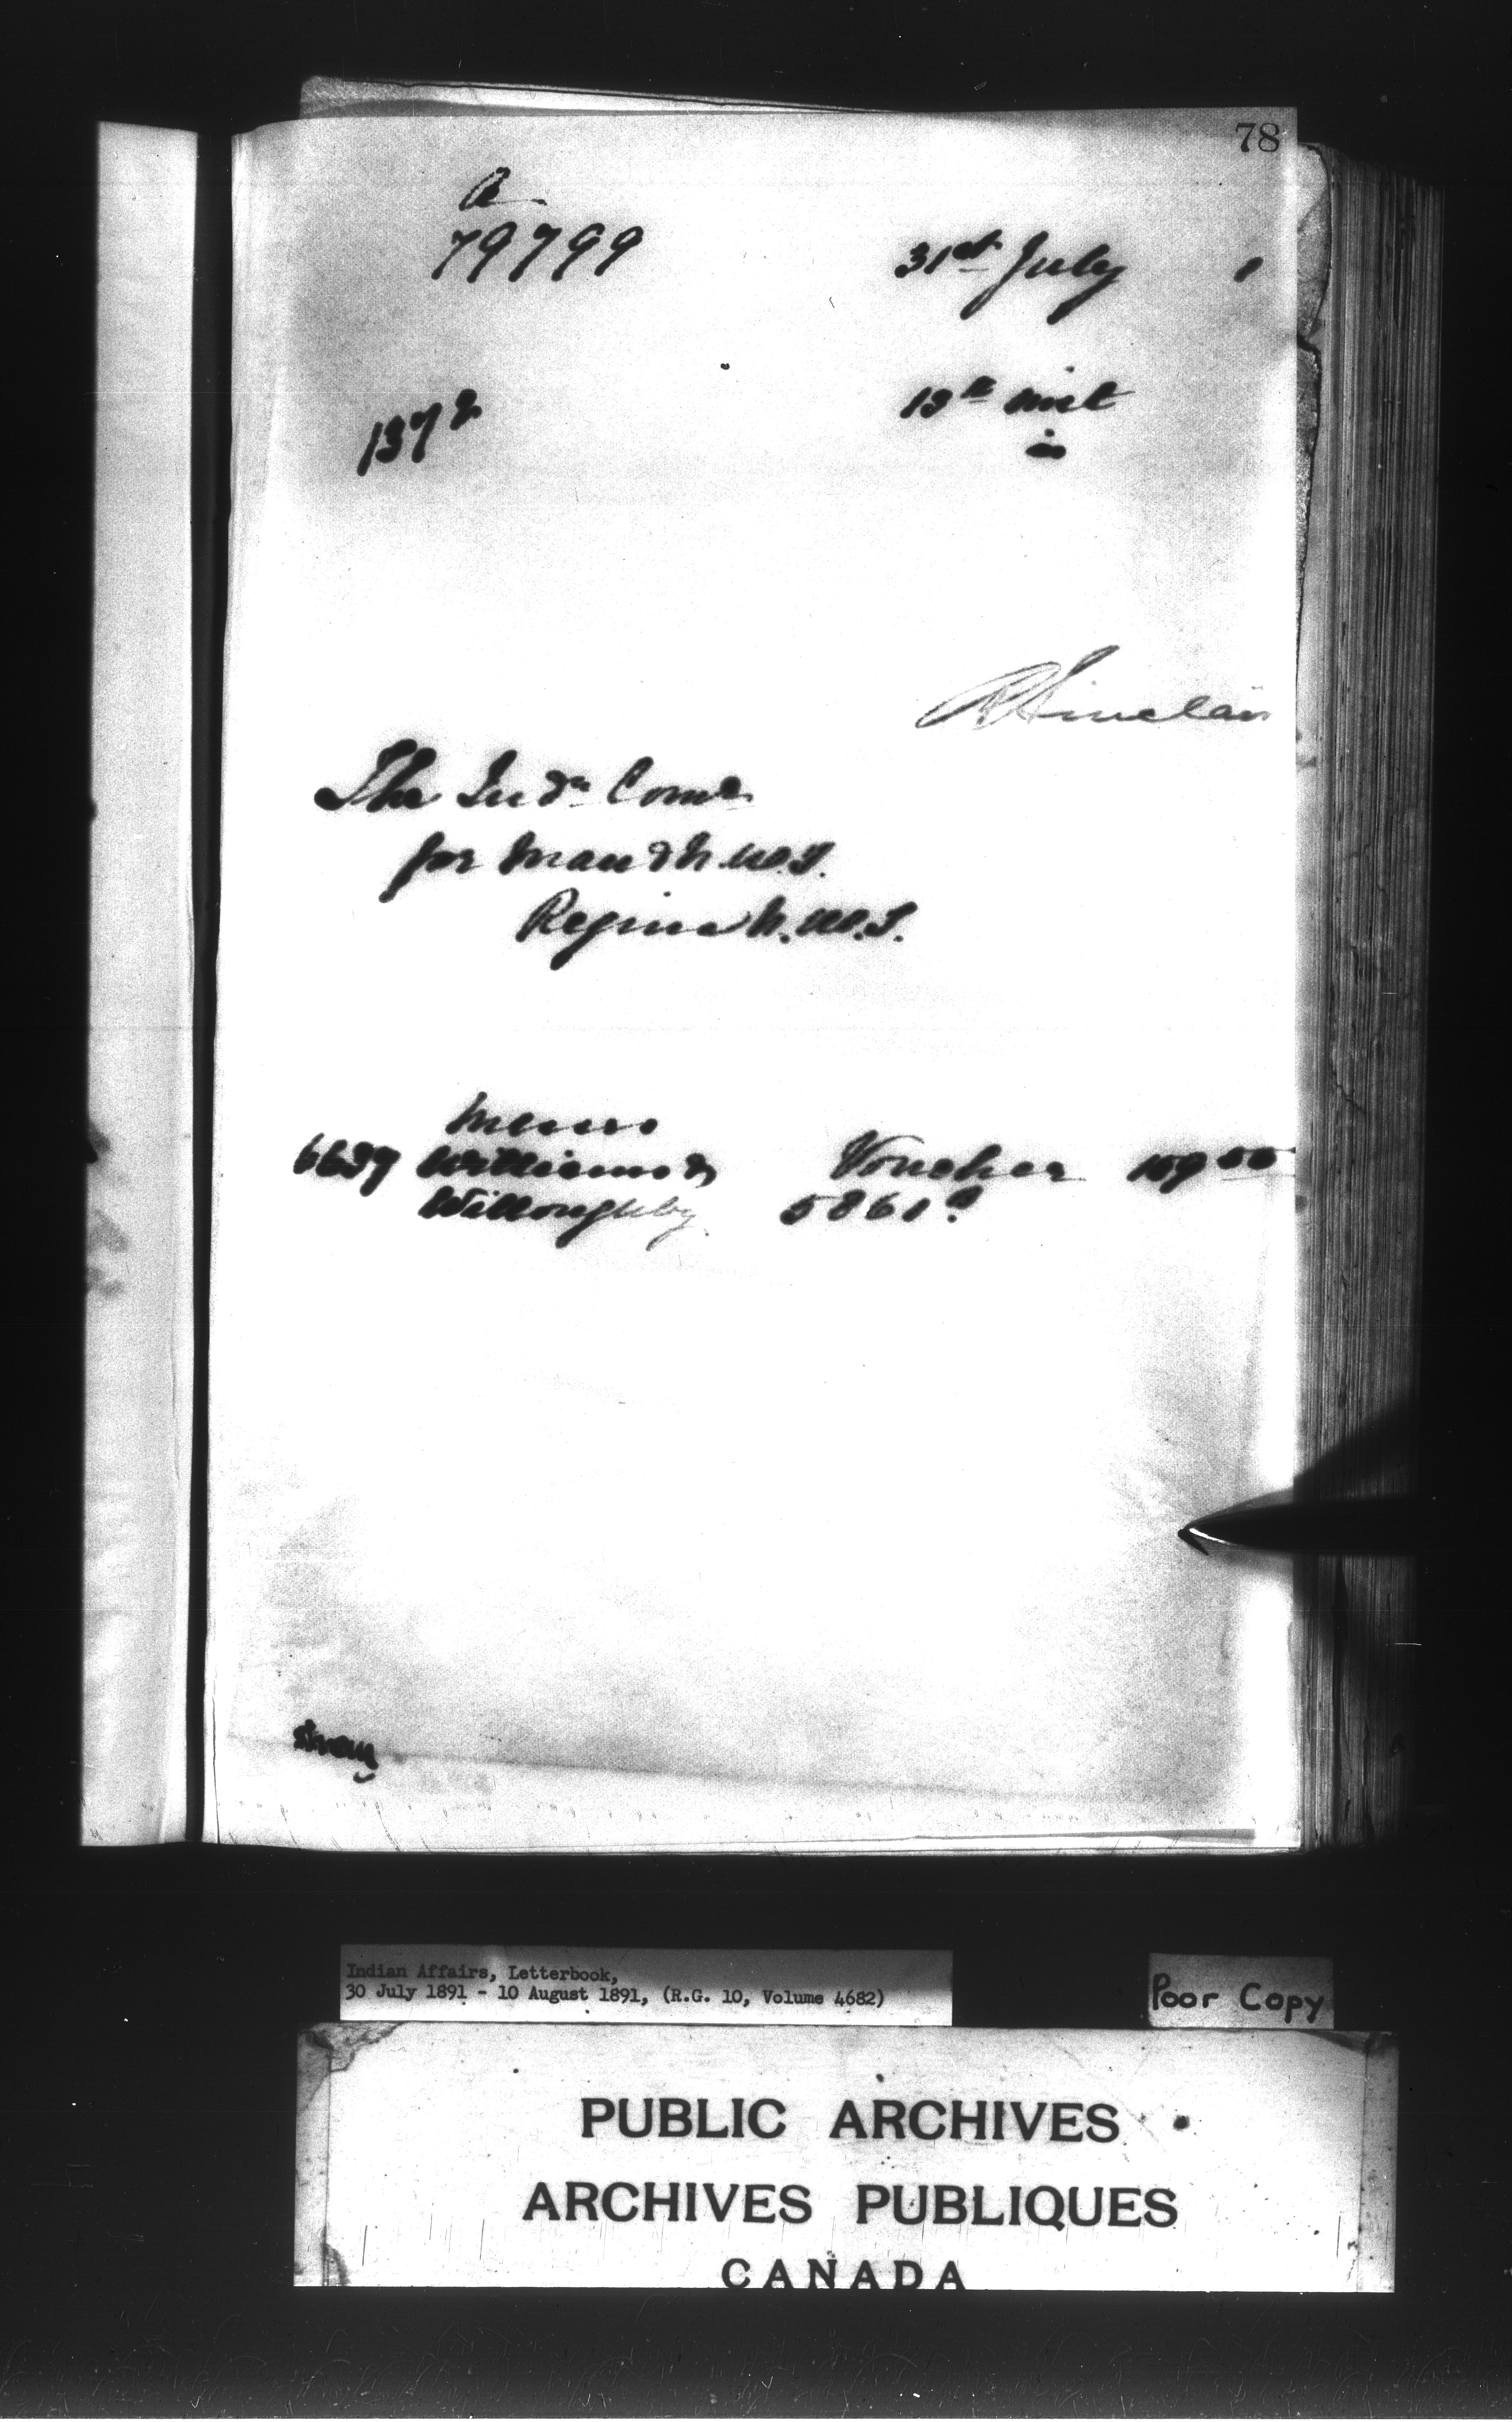 78
A
79799
31st July 1
137 2
13th inst
in
R Sinclair
The Indn Comr
for Man & N.W.T.
Regina N.W.T.
Messrs
6637 Williams &
Willoughby
Voucher 109 00
5861
Indian Affairs, Letterbook,
30 July 1891 - 10 August 1891, (R.G. 10, Volume 4682)
Poor Copy
PUBLIC ARCHIVES
ARCHIVES PUBLIQUES
CANADA